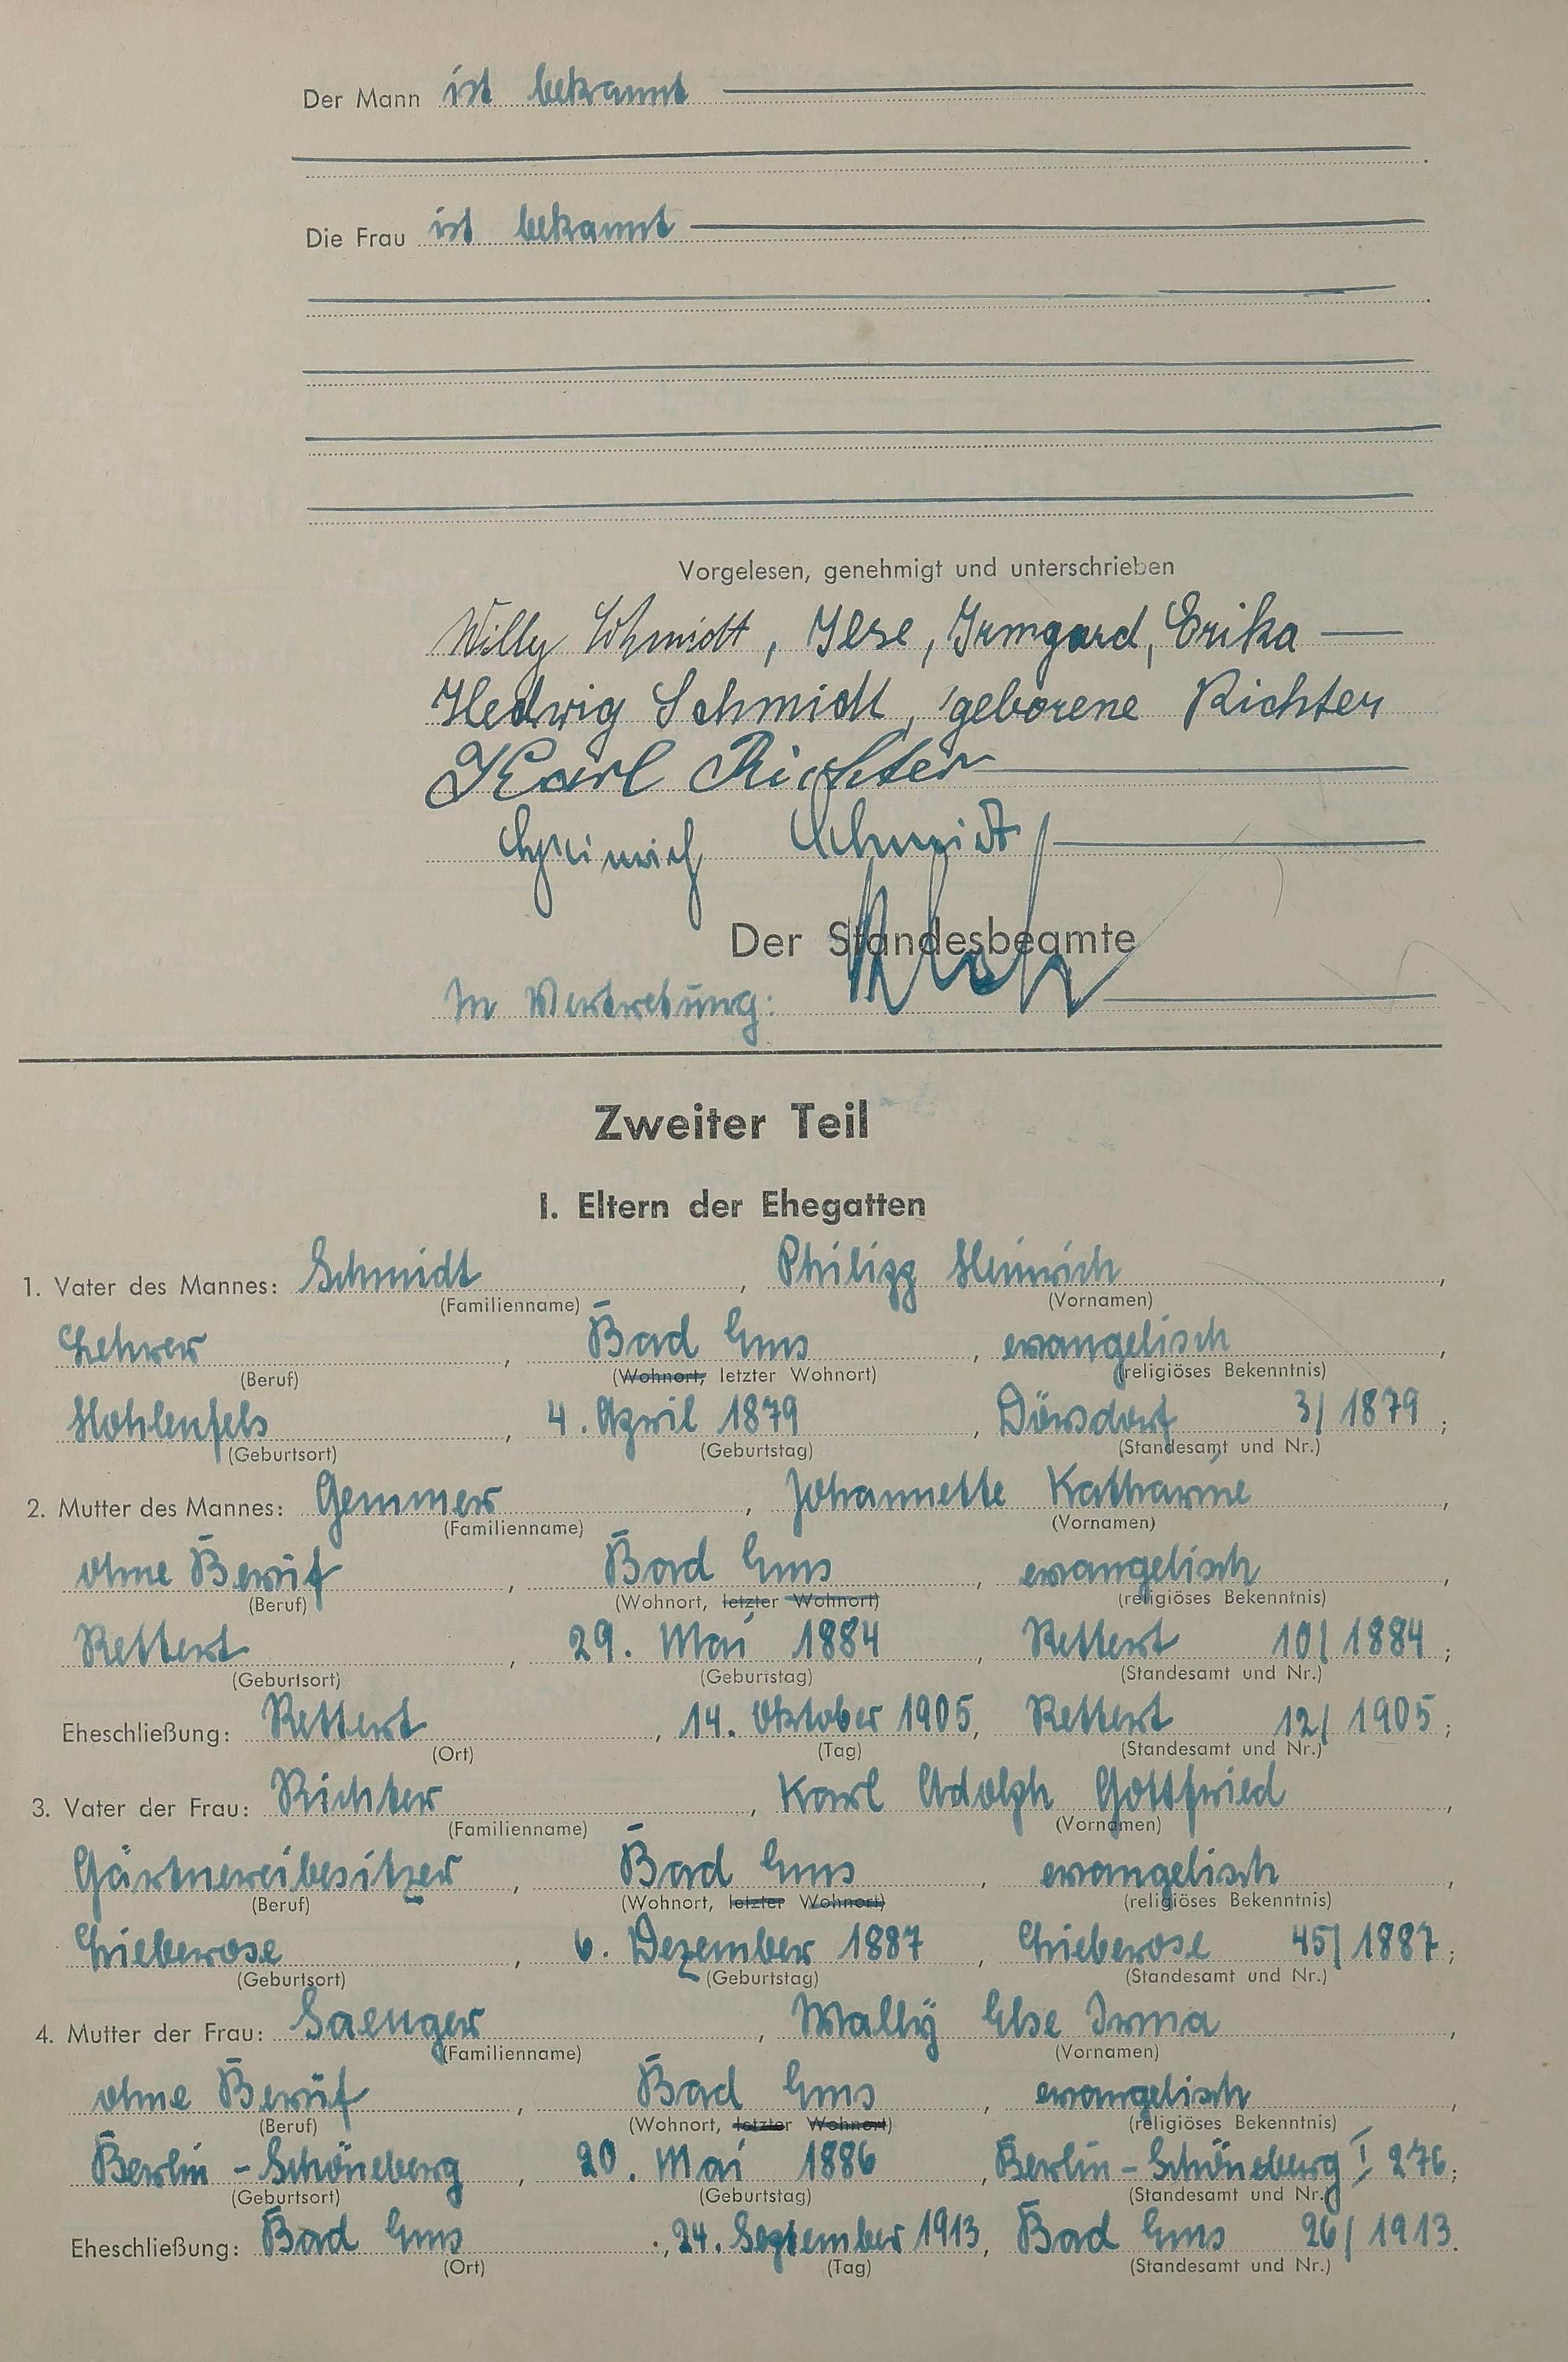 Der Mann ist bekannt
Die Frau ist bekannt
Vorgelesen, genehmigt und unterschrieben
Willy Schmidt, Ilse, Irmgard, Erika
Hedwig Schmidt, geborene Richter
Karl Richter
Heinrich Schmidt
Der Standesbeamte
In Vertretung:
Zweiter Teil
I. Eltern der Ehegatten
1. Vater des Mannes: Schmidt, Philipp Heinrich,
(Familienname) (Vornamen)
Lehrer, Bad Ems, evangelisch,
(Beruf) (Wohnort, letzter Wohnort) (religiöses Bekenntnis)
Hohlenfels, 4. April 1879, Dörsdorf 3/1879;
(Geburtsort) (Geburtstag) (Standesamt und Nr.)
2. Mutter des Mannes: Gemmer, Johannette Katharine,
(Familienname) (Vornamen)
ohne Beruf, Bad Ems, evangelisch,
(Beruf) (Wohnort, letzter Wohnort) (religiöses Bekenntnis)
Rettert, 29. Mai 1884, Rettert 10/1884;
(Geburtsort) (Geburtstag) (Standesamt und Nr.)
Eheschließung: Rettert, 14. Oktober 1905, Rettert 12/1905;
(Ort) (Tag) (Standesamt und Nr.)
3. Vater der Frau: Richter, Karl Adolph Gottfried,
(Familienname) (Vornamen)
Gärtnereibesitzer, Bad Ems, evangelisch,
(Beruf) (Wohnort, letzter Wohnort) (religiöses Bekenntnis)
Lieberose, 6. Dezember 1887, Lieberose 45/1887;
(Geburtsort) (Geburtstag) (Standesamt und Nr.)
4. Mutter der Frau: Saenger, Wally Else Irma,
(Familienname) (Vornamen)
ohne Beruf, Bad Ems, evangelisch,
(Beruf) (Wohnort, letzter Wohnort) (religiöses Bekenntnis)
Berlin-Schöneberg, 20. Mai 1886, Berlin-Schöneberg I 276;
(Geburtsort) (Geburtstag) (Standesamt und Nr.)
Eheschließung: Bad Ems, 24. September 1913, Bad Ems 26/1913.
(Ort) (Tag) (Standesamt und Nr.)